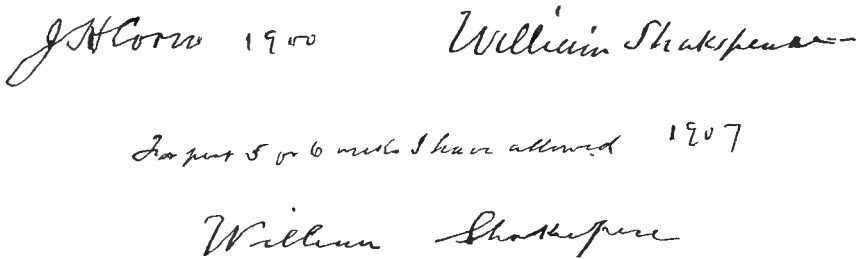 JHCorn 1900 William Shakspeare
For past 5 or 6 weeks I have allowed 1907
William Shakespere